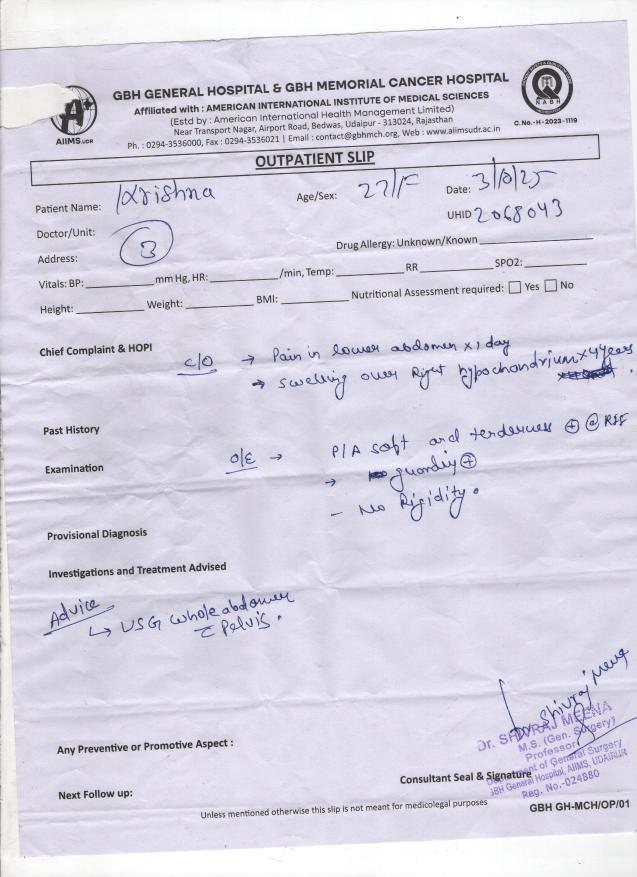 GBH GENERAL HOSPITAL & GBH MEMORIAL CANCER HOSPITAL
Affiliated with : AMERICAN INTERNATIONAL INSTITUTE OF MEDICAL SCIENCES
(Estd by : American International Health Management Limited)
Near Transport Nagar, Airport Road, Bedwas, Udaipur - 313024, Rajasthan
Ph. : 0294-3536000, Fax : 0294-3536021 | Email : contact@gbhmch.org, Web : www.aiimsudr.ac.in
AIIMS.UDR
NABH
C. No.-H-2023-1119
OUTPATIENT SLIP
Patient Name: Krishna Age/Sex: 27/F Date: 3/8/25
UHID 2068043
Doctor/Unit: 3
Drug Allergy: Unknown/Known
Address:
Vitals: BP: mm Hg, HR: /min, Temp: RR SPO2:
Height: Weight: BMI: Nutritional Assessment required: Yes No
Chief Complaint & HOPI
C/O → Pain in lower abdomen x 1 day
→ swelling over Right hypochondrium x 4 years.
Past History
Examination
O/E → P/A soft and tenderness ⊕ @ RIF
→ guarding ⊕
- No Rigidity.
Provisional Diagnosis
Investigations and Treatment Advised
Advice
↳ USG whole abdomen
c̄ Pelvis.
Dr. SHIVRAJ MEENA
M.S. (Gen. Surgery)
Professor
Department of General Surgery
GBH General Hospital, AIIMS, UDAIPUR
Reg. No.-024880
Any Preventive or Promotive Aspect :
Consultant Seal & Signature
Next Follow up:
Unless mentioned otherwise this slip is not meant for medicolegal purposes
GBH GH-MCH/OP/01